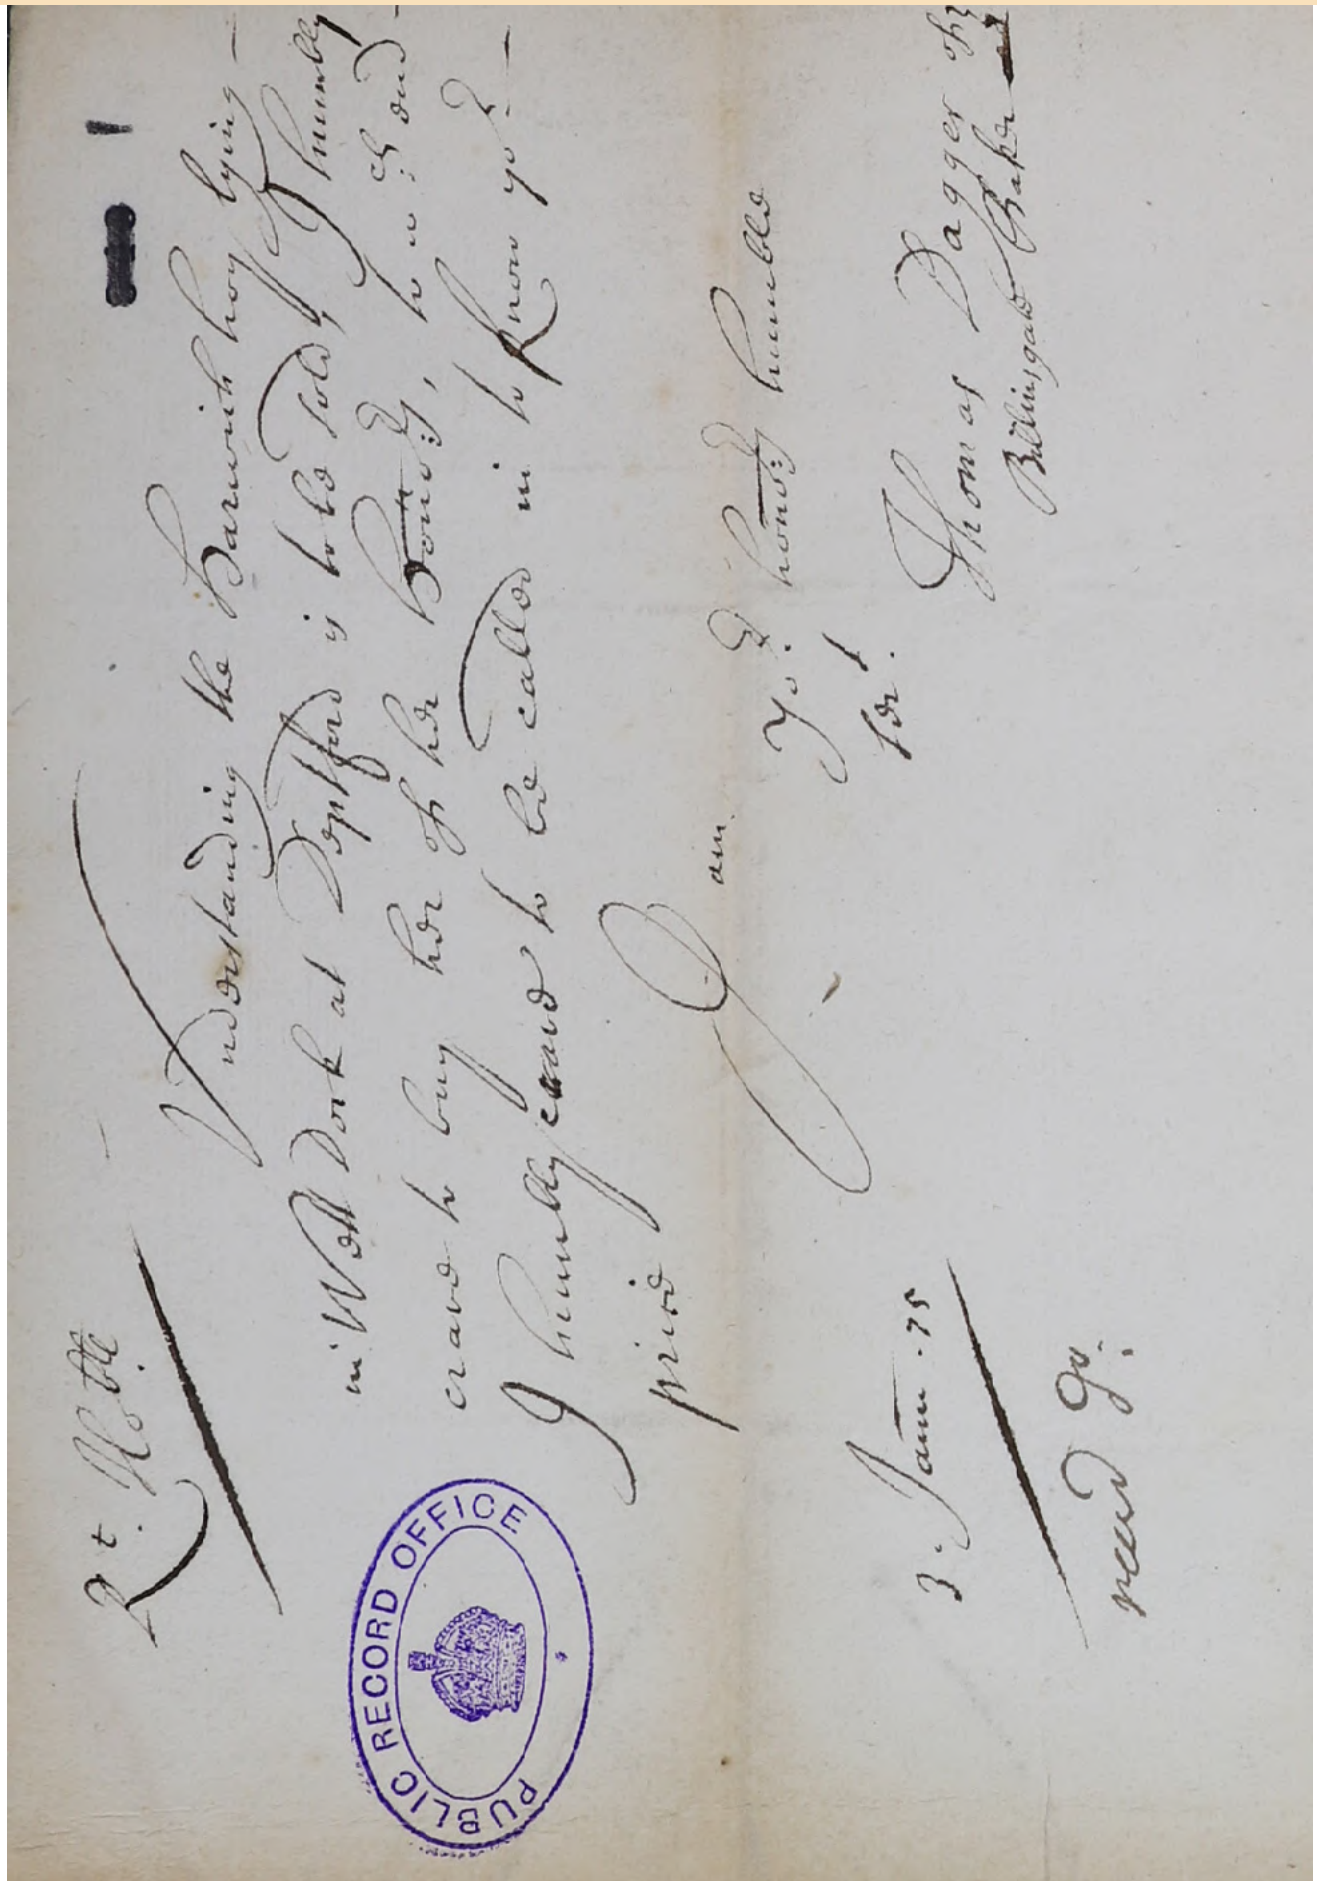 Rt. Hoble
Vnderstanding the Harwich hoy lying
in Wett Dock at Deptford is to be sold, I humbly
crave to buy her of her Honors, to wch end
I humbly crave to be called in to know yor
prise
I am
Yor honors humble
ser:t
Thomas Dagger of
Billingsgate Baker
3. Janu. 75
read Do.
PUBLIC RECORD OFFICE